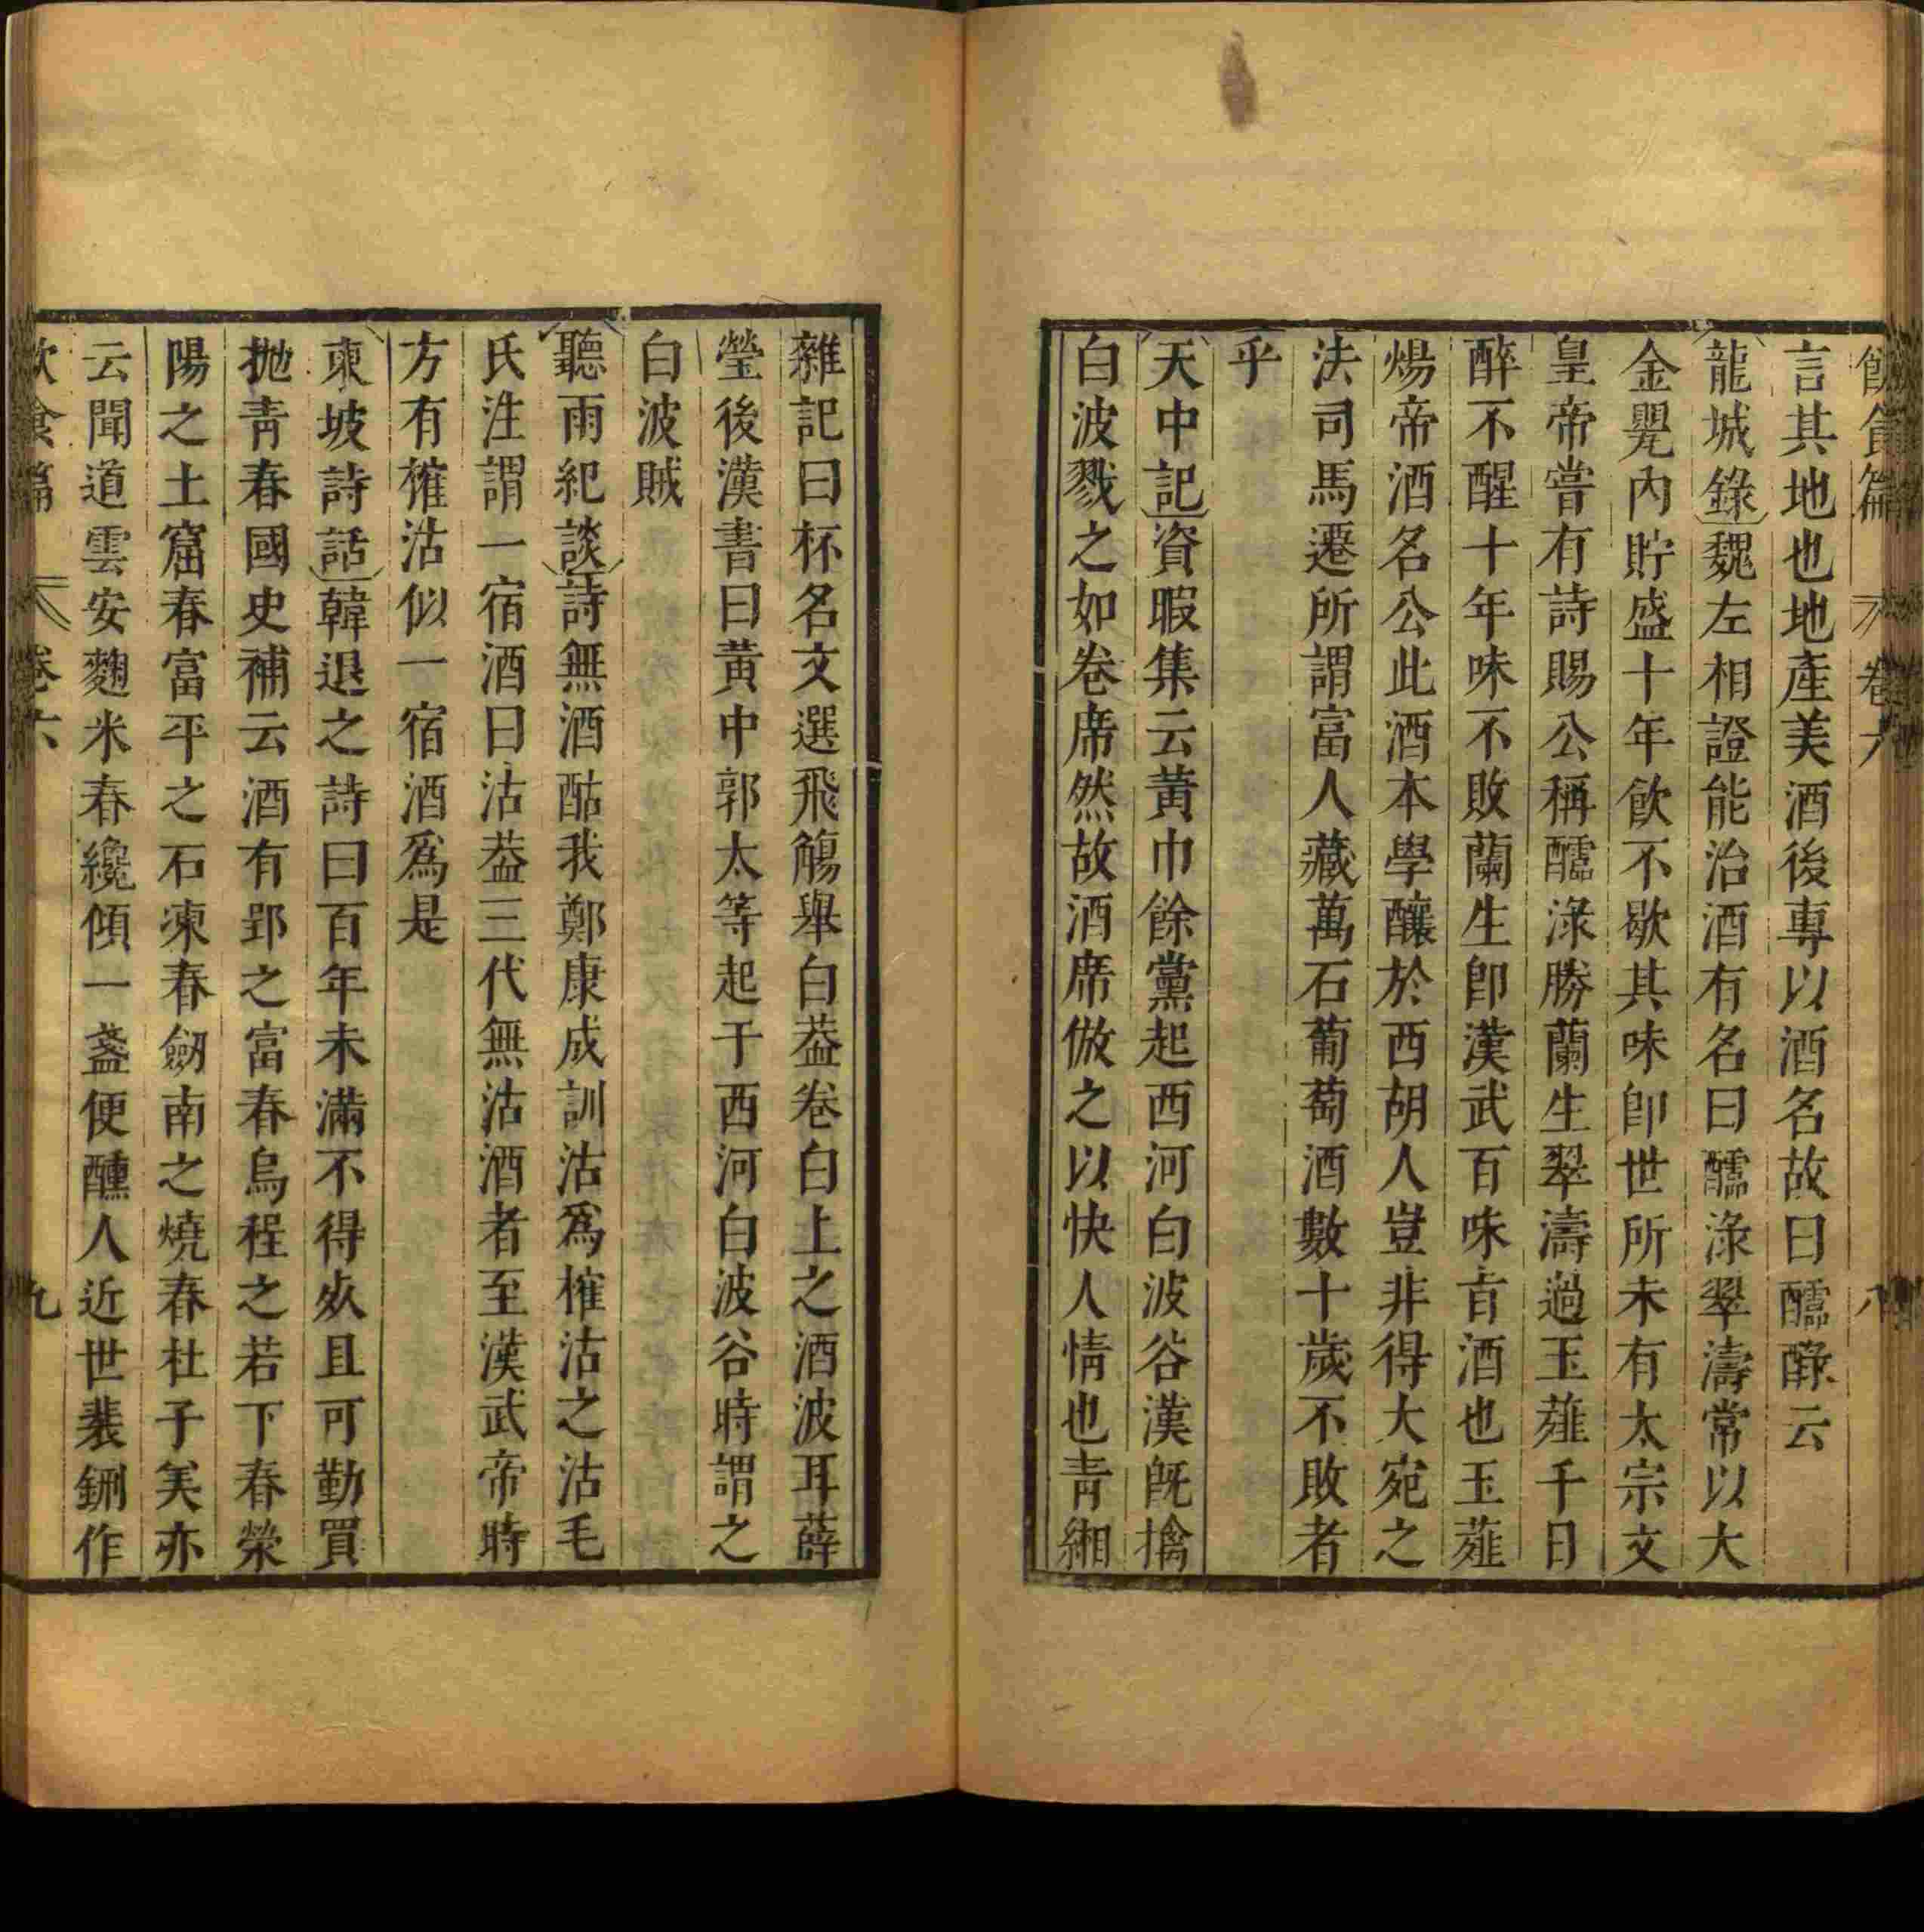 飲食篇 卷六 八
言其地也地產美酒後專以酒名故曰醽醁云
龍城錄魏左相證能治酒有名曰醽淥翠濤常以大
金罌內貯盛十年飲不歇其味卽世所未有太宗文
皇帝嘗有詩賜公稱醽淥勝蘭生翠濤過玉薤千日
醉不醒十年味不敗蘭生卽漢武百味旨酒也玉薤
煬帝酒名公此酒本學釀於西胡人豈非得大宛之
法司馬遷所謂富人藏萬石葡萄酒數十歲不敗者
乎
天中記資暇集云黃巾餘黨起西河白波谷漢旣擒
白波戮之如卷席然故酒席倣之以快人情也靑緗
雜記曰杯名文選飛觴舉白葢卷白上之酒波耳薛
瑩後漢書曰黃中郭太等起于西河白波谷時謂之
白波賊
聽雨紀談詩無酒酤我鄭康成訓沽爲榷沽之沽毛
氏注謂一宿酒曰沽葢三代無沽酒者至漢武帝時
方有榷沽似一宿酒爲是
東坡詩話韓退之詩曰百年未滿不得死且可勤買
拋靑春國史補云酒有郢之富春烏程之若下春滎
陽之土窟春富平之石凍春劒南之燒春杜子美亦
云聞道雲安麴米春纔傾一盞便醺人近世裴鉶作
飲食篇 卷六 九